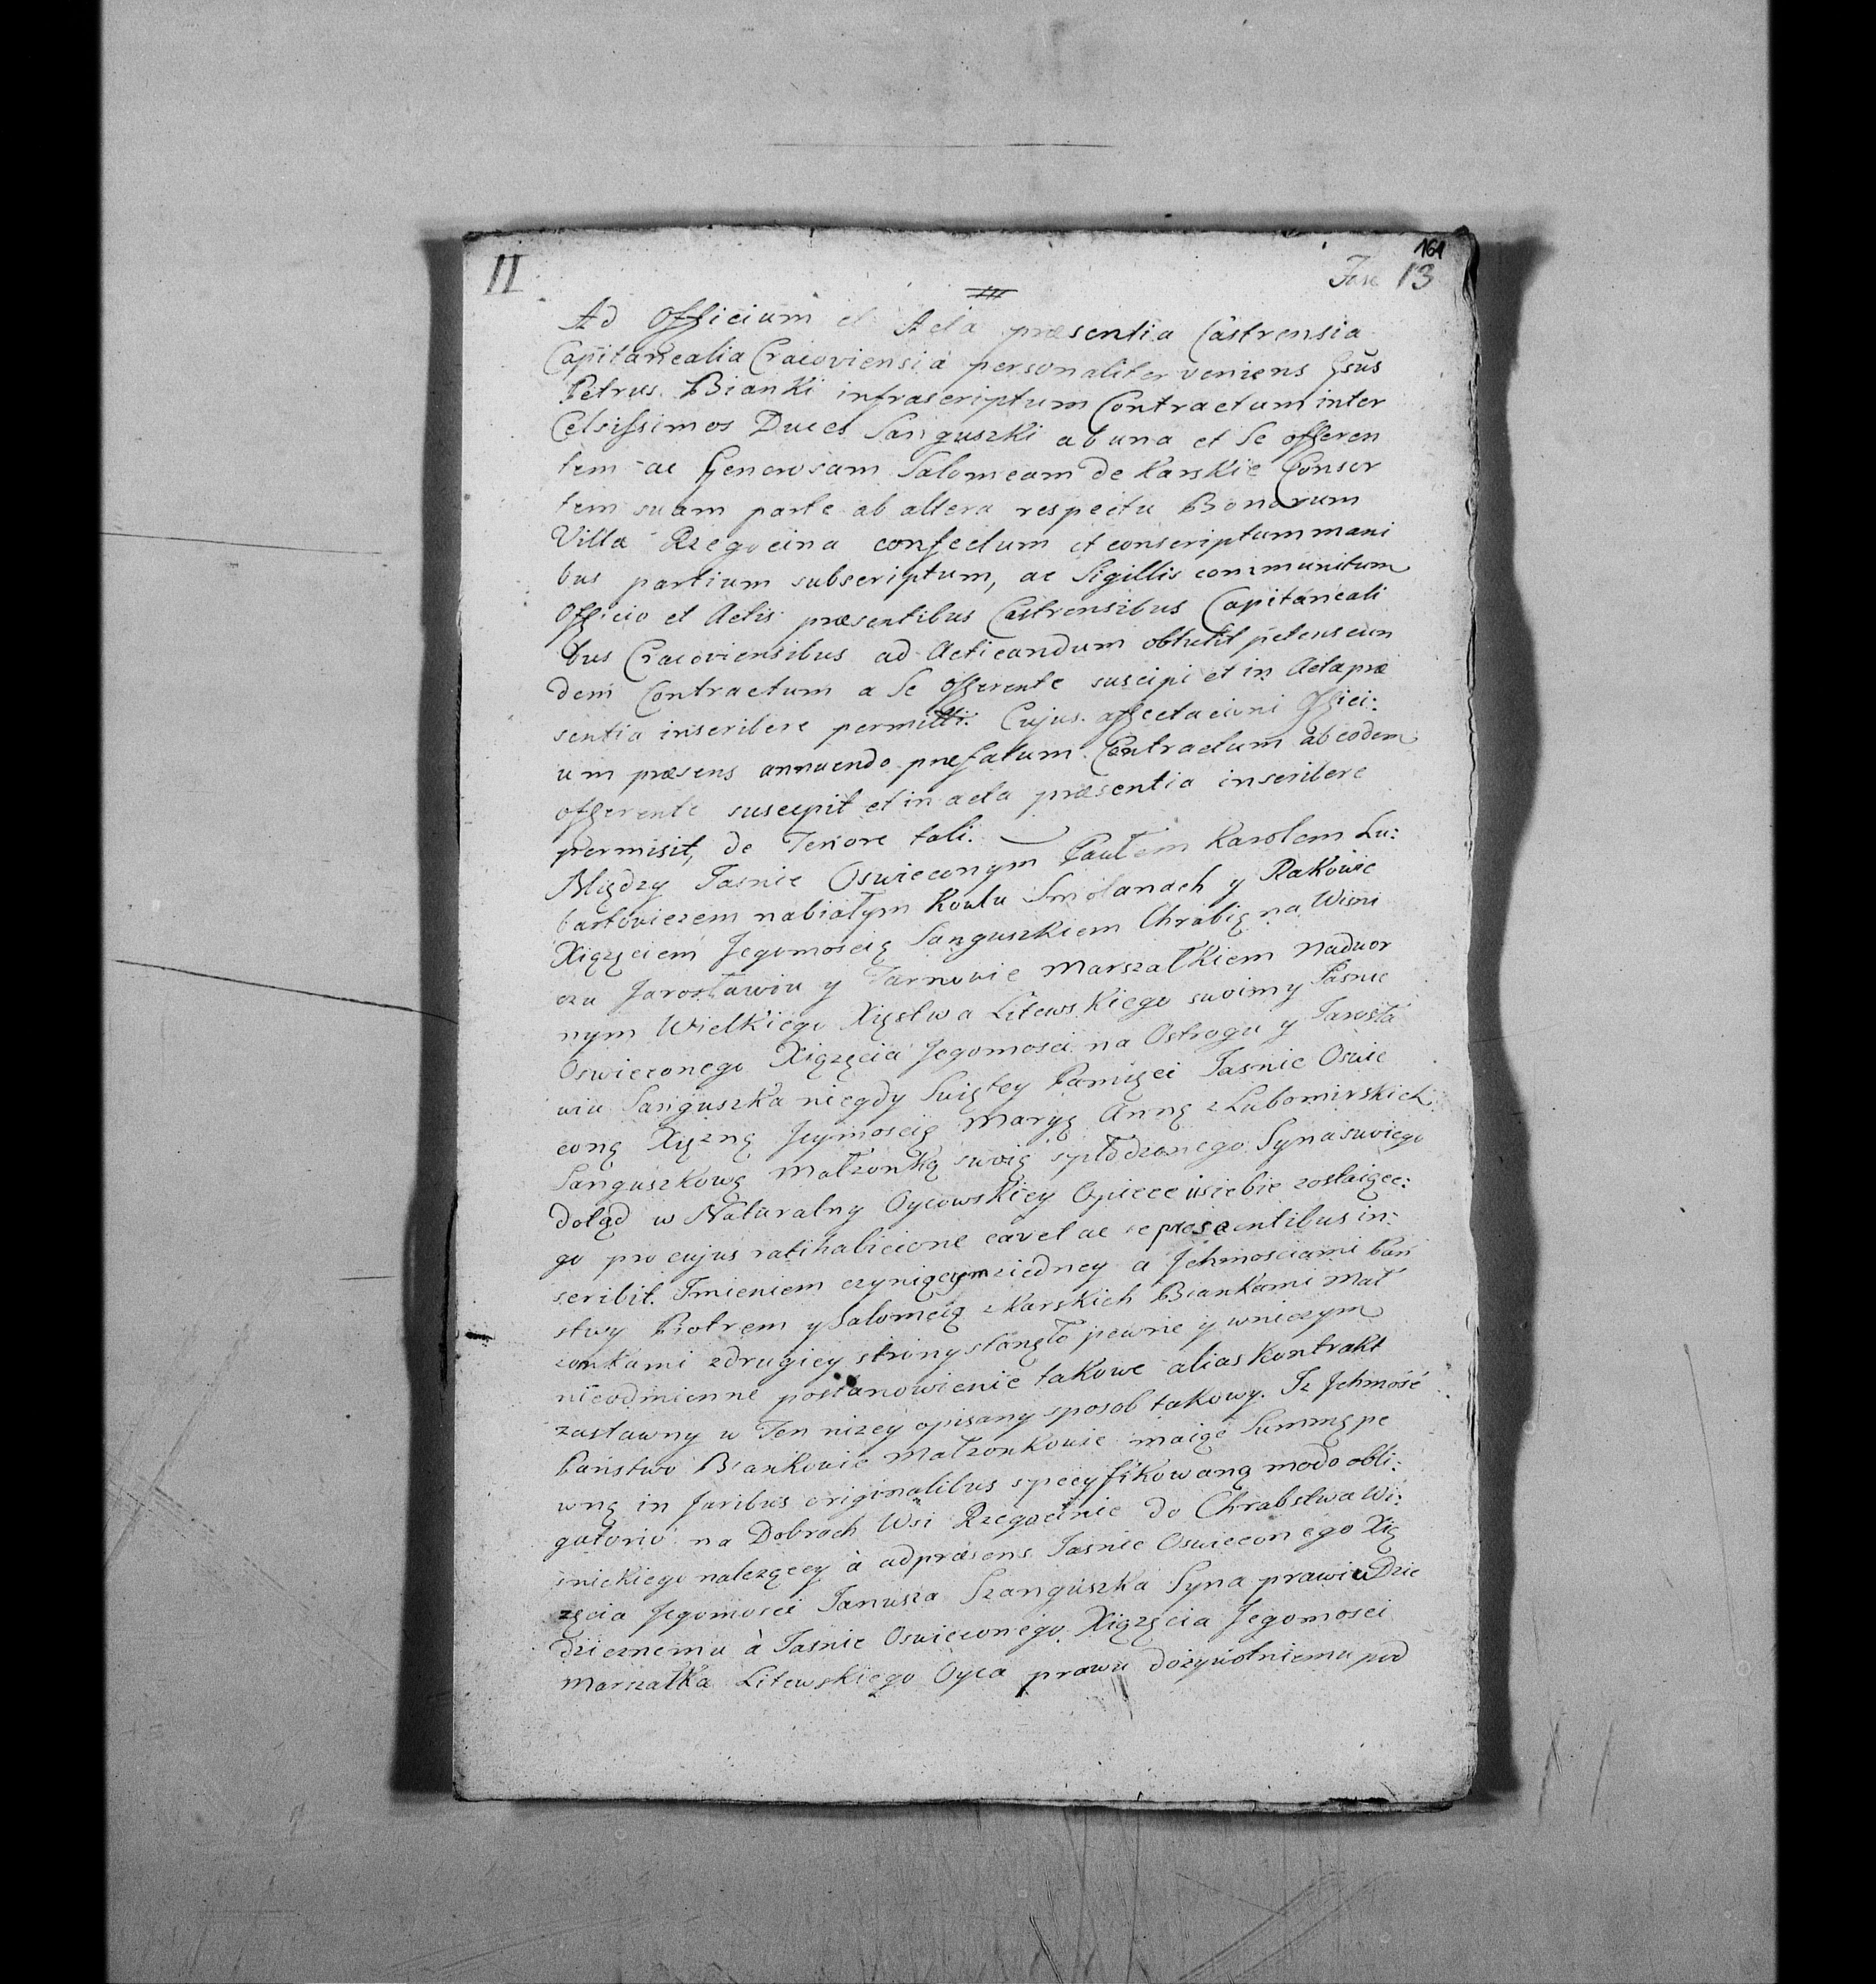 II
161
Fasc 13
Ad Officium et Acta præsentia Castrensia
Capitanealia Cracoviensia personaliter veniens Gsūs
Petrus Bianki infrascriptum Contractum inter
Celsissimos Duces Sanguszki ab una et Se offeren
tem ac Generosam Salomeam de Karskie Consor
tem suam parte ab altera respectu Bonorum
Villa Rzegocina confectum et conscriptum mani
bus partium subscriptum, ac Sigillis communitum
Officio et Actis præsentibus Castrensibus Capitaneali
bus Cracoviensibus ad Acticandum obtulit petens eun
dem Contractum a Se offerente suscipi et in Acta præ
sentia inscribere permitti. Cujus affectacioni Offici:
um præsens annuendo præfatum Contractum ab eodem
offerente suscepit et in acta præsentia inscribere
permisit, de Tenore tali.
Między Jasnie Oswieconym Pawłem Karolem Lu:
bartowiczem nabiałym Kowlu Smolanach y Rakowie
Xiązęciem Jegomoscią Sanguszkiem Chrabią na Wisni
czu Jarosławiu y Tarnowie Marszałkiem Nadwor
nym Wielkiego Xięstwa Litewskiego swoim y Jasnie
Oswieconego Xiązęcia Jegomosci na Ostrogu y Jarosła
wiu Sanguszka niegdy Swiętey Pamięci Jasnie Oswie
coną Xięzną Jeymoscią Maryą Anną z Lubomirskich
Sanguszkową Małzonką swoią spłodzonego Syna swoiego
dotąd w Naturalny Oycowskiey Opiece usiebie zostaiące:
go pro cujus ratihabicione cavet ac se præsentibus in:
scribit. Imieniem czyniącym ziedney a Jchmosciami Pań
stwy Piotrem y Salomeią z Karskich Biankami Mał
zonkami zdrugiey strony stanęło pewne y wniczym
nieodmienne postanowienie takowe alias Kontrakt
zastawny w Ten nizey opisany sposob takowy. Iz Jchmość
Państwo Biankowie Małzonkowie maiąc Summę pe
wną in Juribus originalibus specyfikowaną modo obli:
gatorio na Dobrach Wsi Rzegocinie do Chrabstwa Wi:
snickiego nalezącey à ad præsens Jasnie Oswieconego Xią
zęcia Jegomosci Janusza Szanguszka Syna prawu Dzie
dzicznemu à Jasnie Oswieconego Xiązęcia Jegomosci
Marszałka Litewskiego Oyca prawu dozywotniemu pod